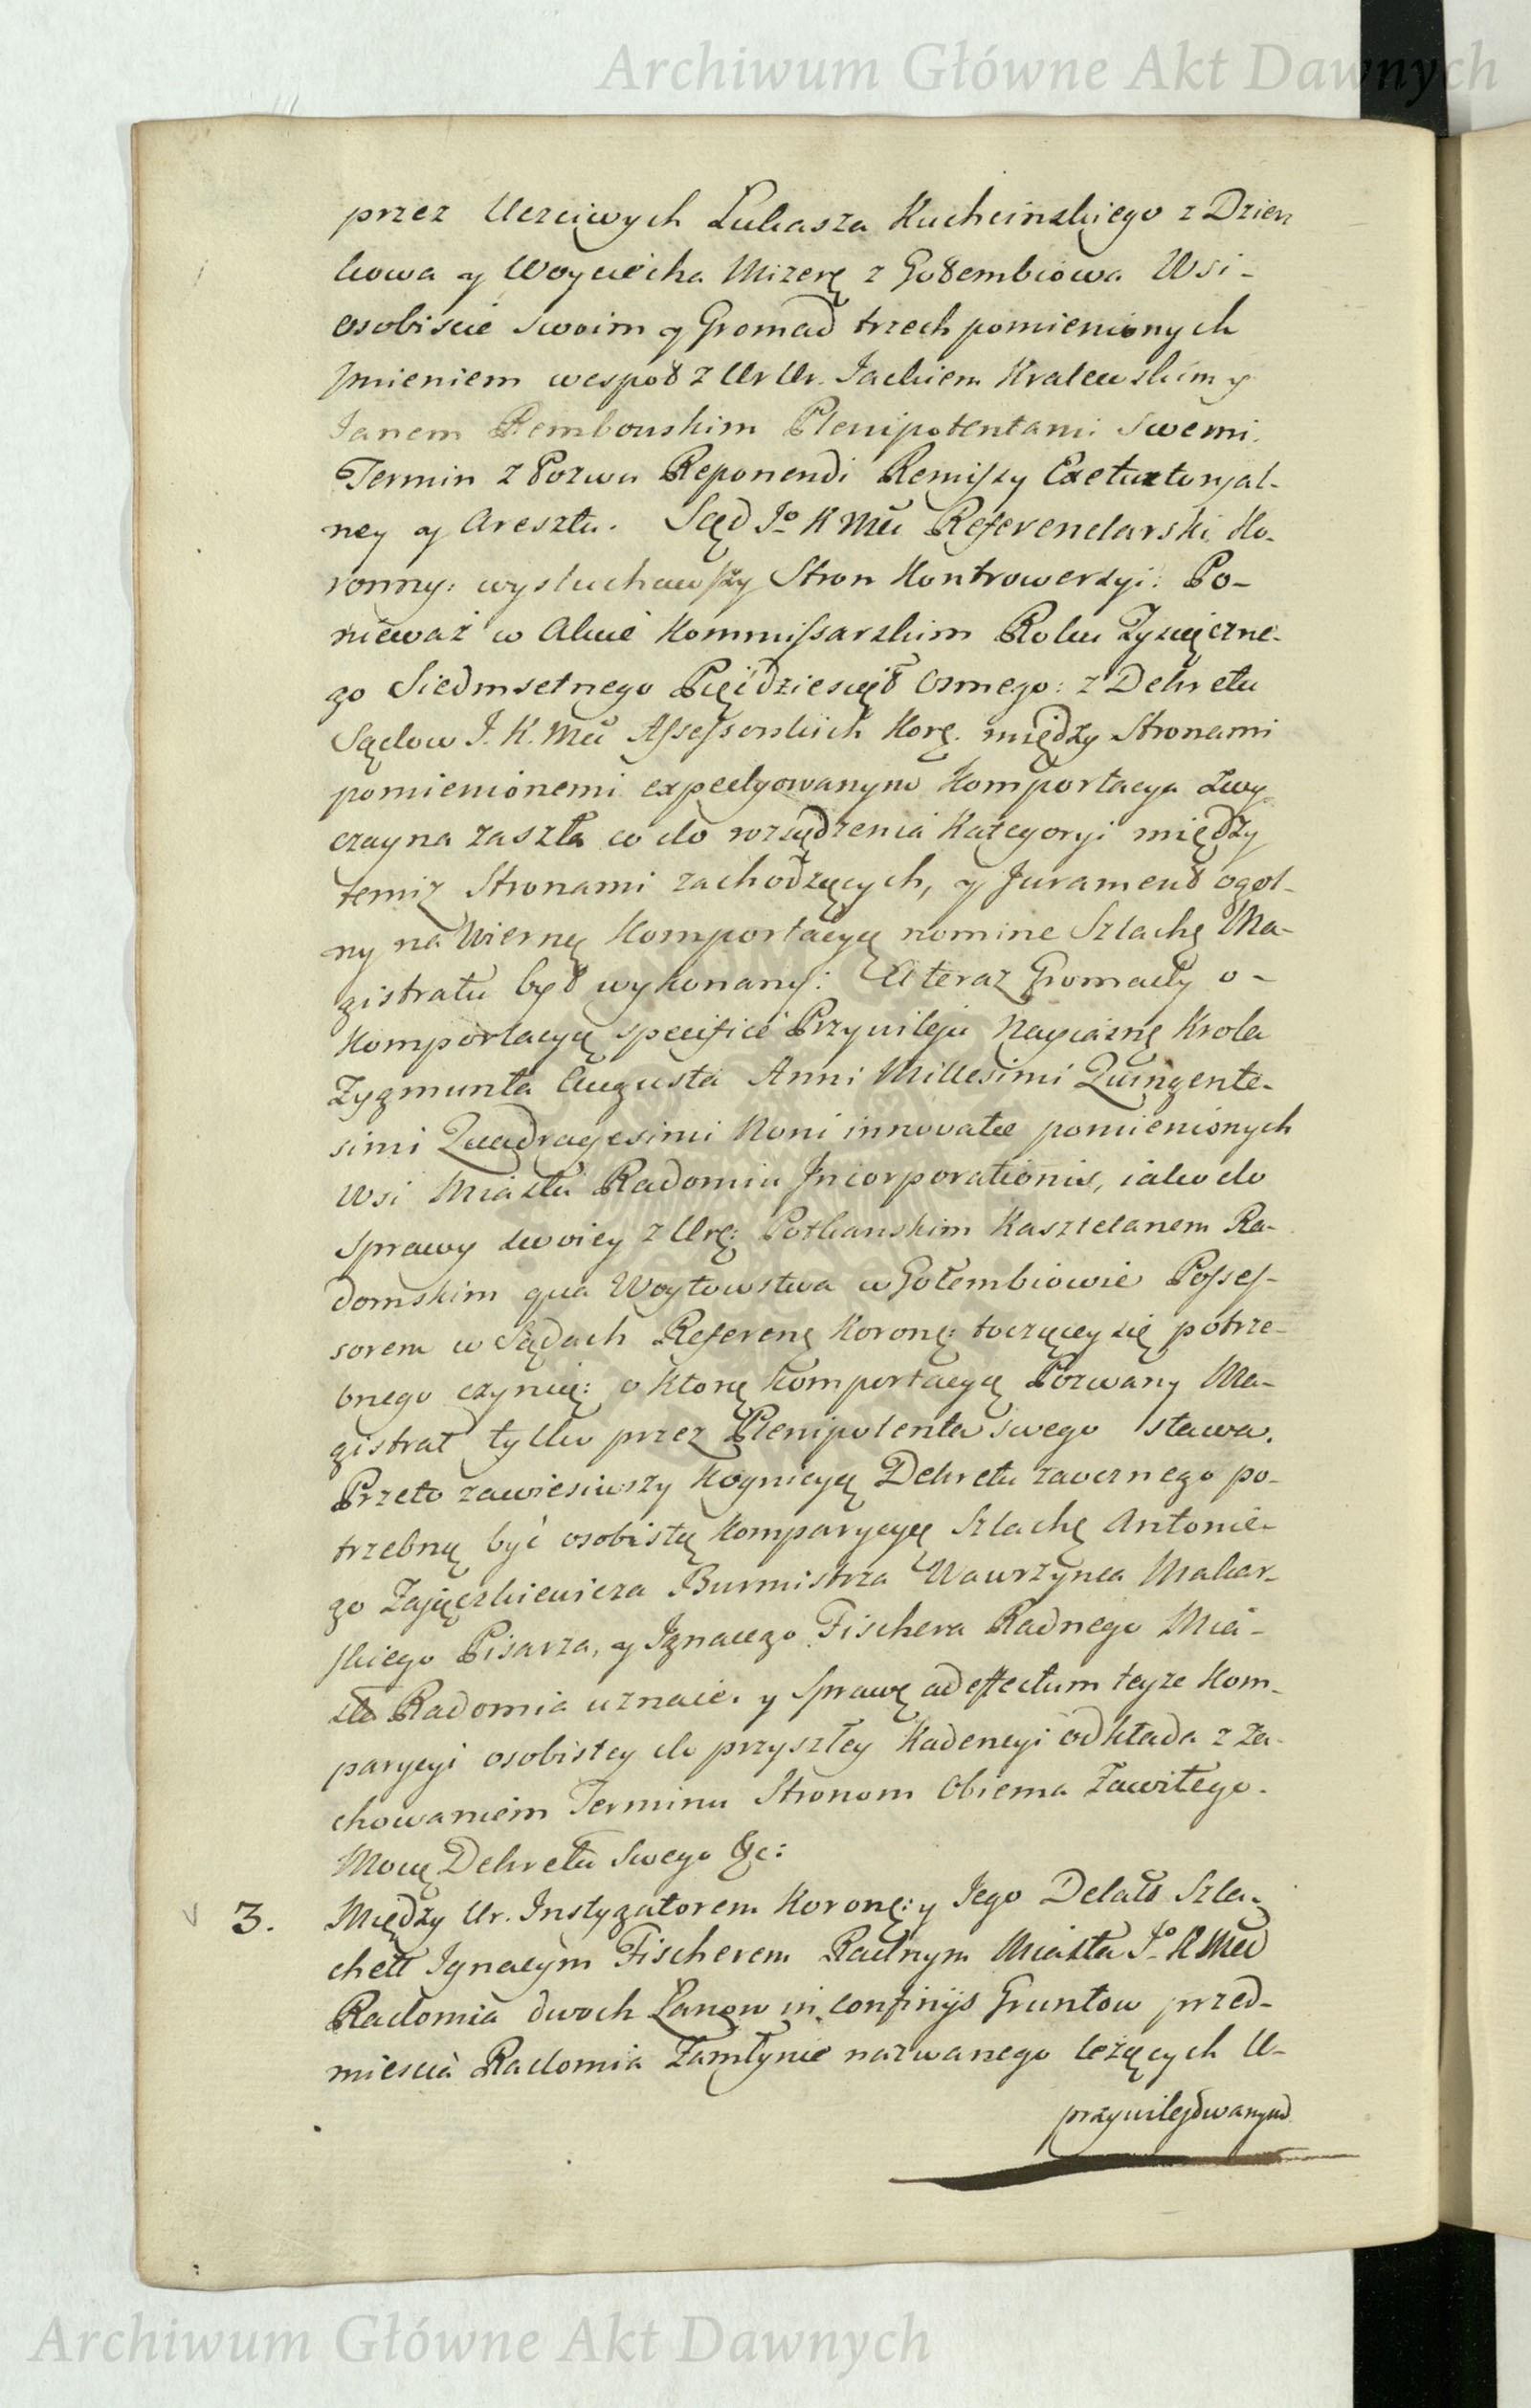 Archiwum Główne Akt Dawnych
przez Uczciwych Łukasza Kuchcinskiego z Dzierz
kowa y Woyciecha Mizerę z Gołembiowa Wsi-
osobiscie swoim y Gromad trzech pomienionych
Jmieniem wespoł z Ur Ur. Jackiem Kralewskim y
Janem Rembowskim Plenipotentami swemi.
Termin z Pozwu Reponendi Remissy Exetuxtoryal-
ney y Aresztu. Sąd Jo K Mci Referendarski Ko-
ronny: wysłuchawszy Stron Kontrowersyi: Po-
nieważ w Akcie Kommissarskim Roku Tysiączne-
go Siedmsetnego Pięćdziesiąt Osmego: z Dekretu
Sądow J. K. Mci Assessorskich Korę. między Stronami
pomienionemi expedyowanym Komportacya zwy
czayna zaszła co do rozsądzenia Kategoryi między
temiż Stronami zachodzących, y Jurament ogol-
ny na Wierną Komportacyą nomine Szlachę Ma-
gistratu był wykonany: A teraz Gromady o-
Komportacyą specifice Przywileju Nayiaśnę Krola
Zygmunta Augusta Anni Millesimi Quingente-
simi Quadragesimi Noni innovatae pomienionych
Wsi Miastu Radomiu Jncorporationis, iako do
Sprawy swoiey z Urę: Potkanskim Kasztelanem Ra-
domskim qua Woytowstwa w Gołembiowie Posses-
sorem w Sądach Referenę Koronę: toczącey się potrze-
bnego czynią: o Ktorą Komportacyą Pozwany Ma-
gistrat tylko przez Plenipotenta swego stawa.
Przeto zawiesiwszy Kognicyą Dekretu zaocznego po-
trzebną być osobistą Komparycyą Szlachę Antonie-
go Zajączkiewicza Burmistrza Wawrzynca Makar-
skiego Pisarza, y Ignacego Fischera Radnego Mia-
sta Radomia uznaie. y Sprawę ad effectum teyże Kom-
parycyi osobistey do przyszłey Kadencyi odkłada z Za-
chowaniem Terminu Stronom Obiema Zawitego.
Mocą Dekretu Swego &c:
3. Między Ur. Instygatorem Koronę: y Jego Delato Szla-
chett Ignacym Fischerem Radnym Miasta Jo K Mci
Radomia dwoch Łanow in confinijs Gruntow przed-
miescia Radomia Zamłynie nazwanego leżących U-
przywilejowanym
Archiwum Główne Akt Dawnych